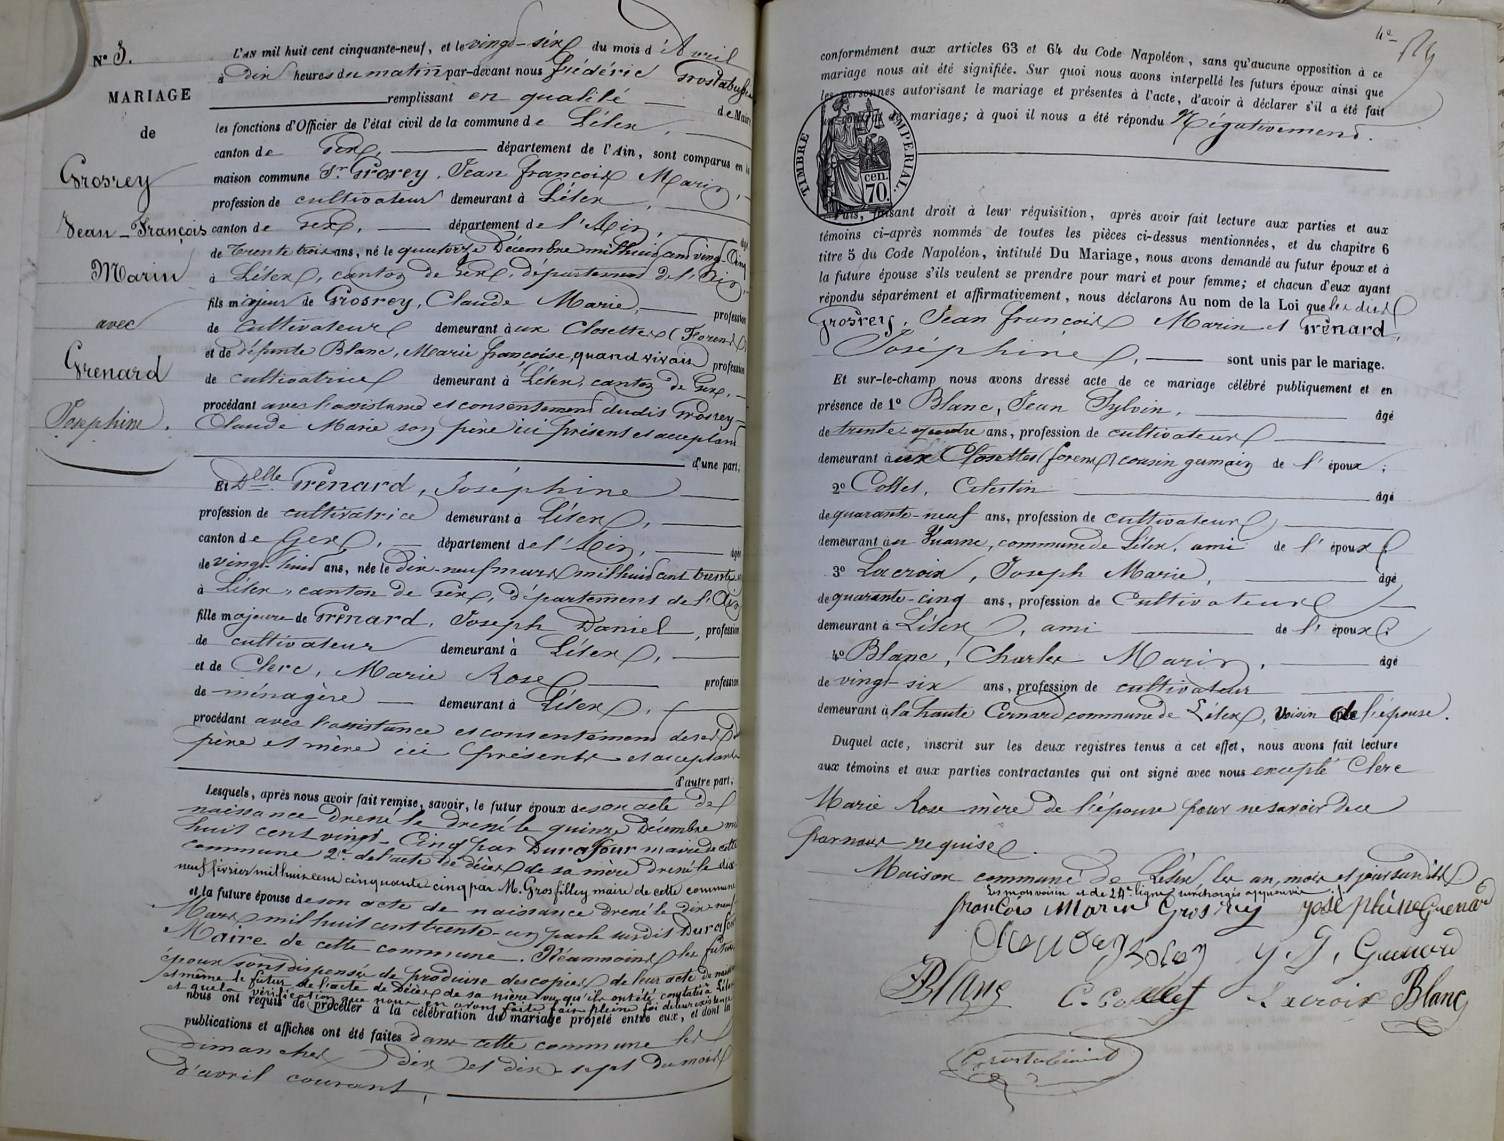 N° 3.
MARIAGE
de
Grosrey
Jean-François
Marin
avec
Grenard
Joséphine.
L'AN mil huit cent cinquante-neuf, et le vingt-six du mois d'Avril
à dix heures du matin par-devant nous Frédéric
remplissant en qualité de Maire
les fonctions d'Officier de l'état civil de la commune de Lélex,
canton de Gex, département de l'Ain, sont comparus en la
maison commune Sr Grosrey, Jean François Marin,
profession de cultivateur demeurant à Lélex,
canton de Gex, département de l'Ain, âgé
de trente trois ans, né le quatorze Décembre mil huit cent vingt-cinq
à Lélex, canton de Gex, département de l'Ain,
fils majeur de Grosrey, Claude Marie, profession
de cultivateur demeurant aux Closettes (Forens)
et de défunte Blanc, Marie Françoise, quand vivait profession
de cultivatrice demeurant à Lélex, canton de Gex,
procédant avec l'assistance et consentement dudit Grosrey
Claude Marie son père ici présent et acceptant
d'une part,
Et Delle Grenard, Joséphine
profession de cultivatrice demeurant à Lélex,
canton de Gex, département de l'Ain, âgée
de vingt-huit ans, née le dix-neuf mars mil huit cent trente un
à Lélex, canton de Gex, département de l'Ain
fille majeure de Grenard, Joseph Daniel, profession
de cultivateur demeurant à Lélex,
et de Clerc, Marie Rose profession
de ménagère demeurant à Lélex,
procédant avec l'assistance et consentement de ses dits
père et mère ici présents et acceptants
d'autre part,
Lesquels, après nous avoir fait remise, savoir, le futur époux de son acte de
naissance dressé le dressé le quinze Décembre mil
huit cent vingt-cinq par Durafour maire de cette
commune 2° de l'acte de décès de sa mère dressé le dix
neuf février mil huit cent cinquante cinq par M. Grosfilley maire de cette commune
et la future épouse de son acte de naissance dressé le dix neuf
Mars mil huit cent trente-un par le susdit Durafour
Maire de cette commune. Néanmoins les futurs
époux sont dispensés de produire des copies de leur acte de naissance
et même le futur de l'acte de Décès de sa mère vu qu'ils ont été constatés à Lélex
et que la vérification que nous en avons faite fait pleine foi de leur existence
nous ont requis de procéder à la célébration du mariage projeté entre eux, et dont les
publications et affiches ont été faites dans cette commune les
dimanches dix et dix-sept du mois
d'avril courant,
4e
conformément aux articles 63 et 64 du Code Napoléon, sans qu'aucune opposition à ce
mariage nous ait été signifiée. Sur quoi nous avons interpellé les futurs époux ainsi que
les personnes autorisant le mariage et présentes à l'acte, d'avoir à déclarer s'il a été fait
de mariage; à quoi il nous a été répondu Négativement.
TIMBRE IMPERIAL
70 cen.
Puis, faisant droit à leur réquisition, après avoir fait lecture aux parties et aux
témoins ci-après nommés de toutes les pièces ci-dessus mentionnées, et du chapitre 6
titre 5 du Code Napoléon, intitulé Du Mariage, nous avons demandé au futur époux et à
la future épouse s'ils veulent se prendre pour mari et pour femme; et chacun d'eux ayant
répondu séparément et affirmativement, nous déclarons Au nom de la Loi que les dits
Grosrey, Jean François Marin et Grenard,
Joséphine, sont unis par le mariage.
Et sur-le-champ nous avons dressé acte de ce mariage célébré publiquement et en
présence de 1° Blanc, Jean Sylvin, âgé
de trente-quatre ans, profession de cultivateur
demeurant aux Closettes (forens) cousin germain de l'époux;
2° Collet, Célestin âgé
de quarante-neuf ans, profession de cultivateur
demeurant à commune de Lélex, ami de l'époux;
3° Lacroix, Joseph Marie, âgé
de quarante-cinq ans, profession de Cultivateur
demeurant à Lélex, ami de l'époux;
4° Blanc, Charles Marin, âgé
de vingt-six ans, profession de cultivateur
demeurant à la haute commune de Lélex, voisin de l'épouse.
Duquel acte, inscrit sur les deux registres tenus à cet effet, nous avons fait lecture
aux témoins et aux parties contractantes qui ont signé avec nous excepté Clerc
Marie Rose mère de l'épouse pour ne savoir de ce
par nous requise.
Maison commune de Lélex les an, mois et jour susdits
Les mots voisin et de 24e ligne surchargés approuvés
françois Marin Grosrey Joséphine Grenard
J. Grenard
Blanc C. Collet Lacroix Blanc